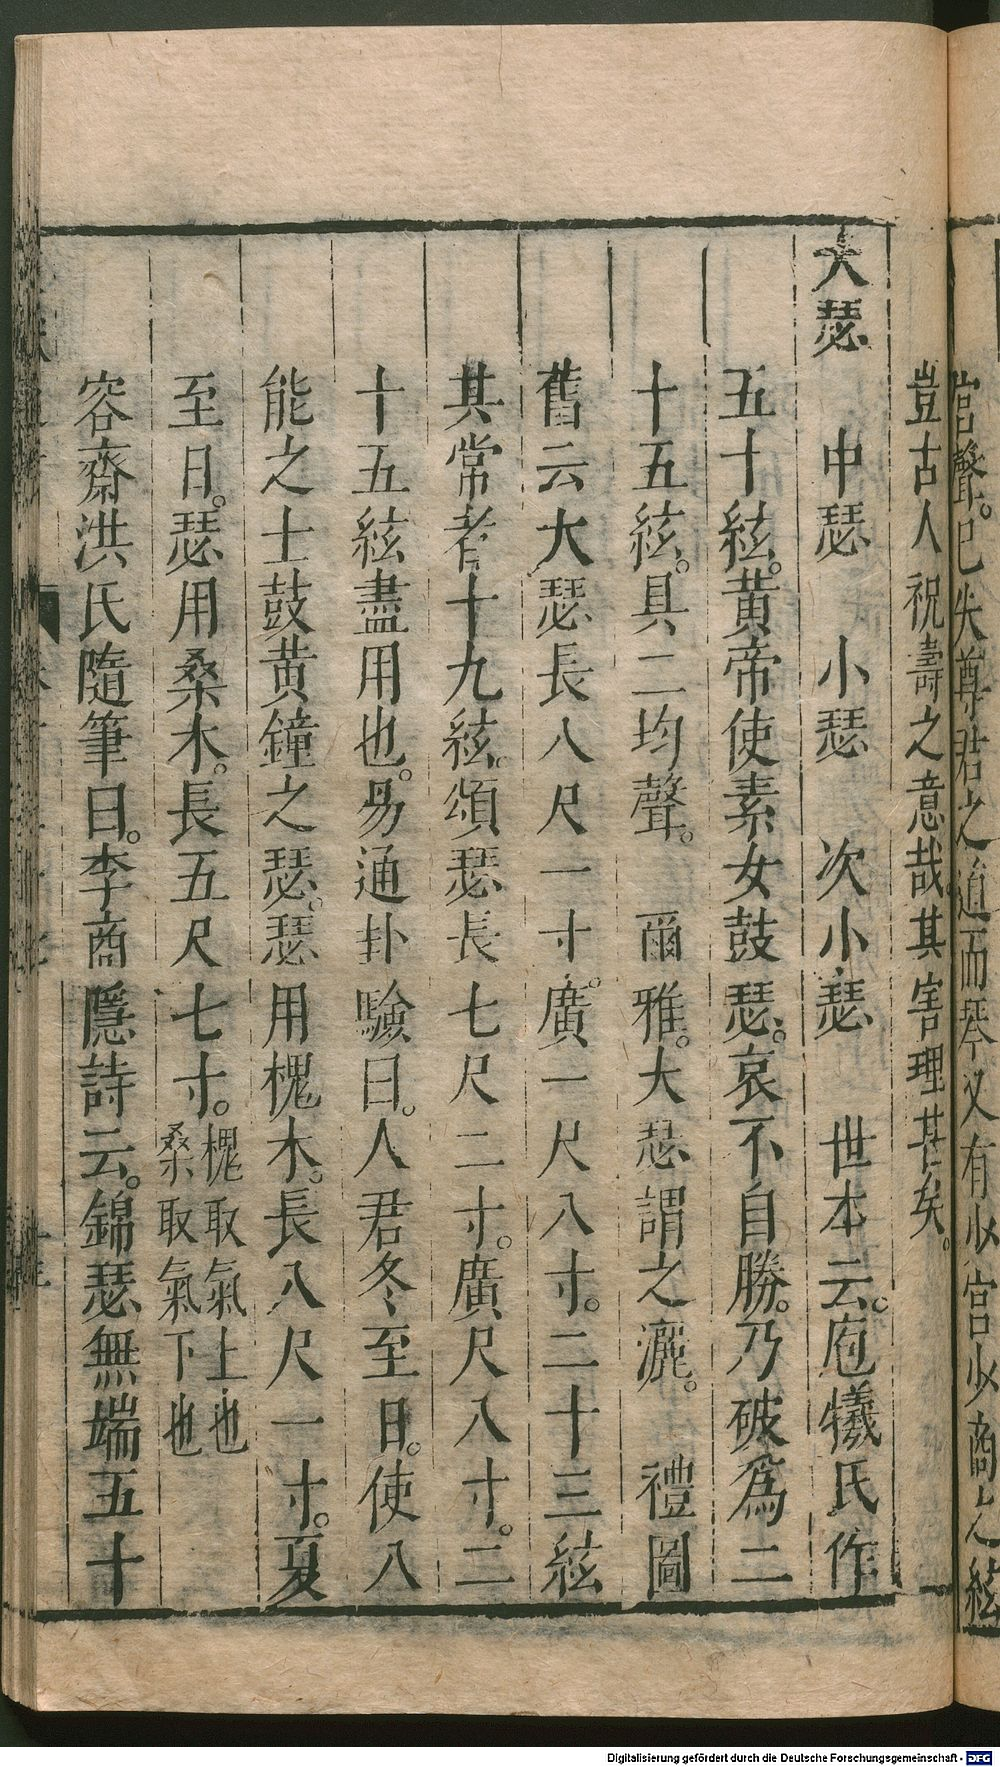 宫聲。已失尊君之道而琴又有少宫少商之絃
豈古人祝壽之意哉。其害理甚矣。
大瑟　中瑟　小瑟　次小瑟　世本云。庖犧氏作
五十絃。黄帝使素女鼓瑟。哀不自勝。乃破爲二
十五絃。具二均聲。　爾雅。大瑟謂之灑。　禮圖
舊云大瑟長八尺一寸。廣一尺八寸。二十三絃
其常者十九絃。頌瑟長七尺二寸。廣尺八寸。二
十五絃盡用也。易通卦驗曰。人君冬至日。使八
能之士鼓黄鐘之瑟。瑟用槐木。長八尺一寸。夏
至日。瑟用桑木。長五尺七寸。槐取氣上也桑取氣下也
容齋洪氏隨筆曰。李商隱詩云。錦瑟無端五十
Digitalisierung gefördert durch die Deutsche Forschungsgemeinschaft - DFG